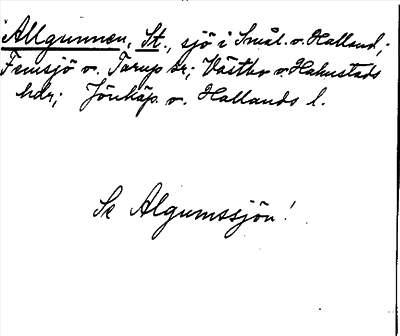 Allgunnen, St., sjö i Smål. o. Halland;
Femsjö o. Torup sr; Västbo o Halmstads
hdr; Jönköp. o. Hallands l.
Se Algumssjön!